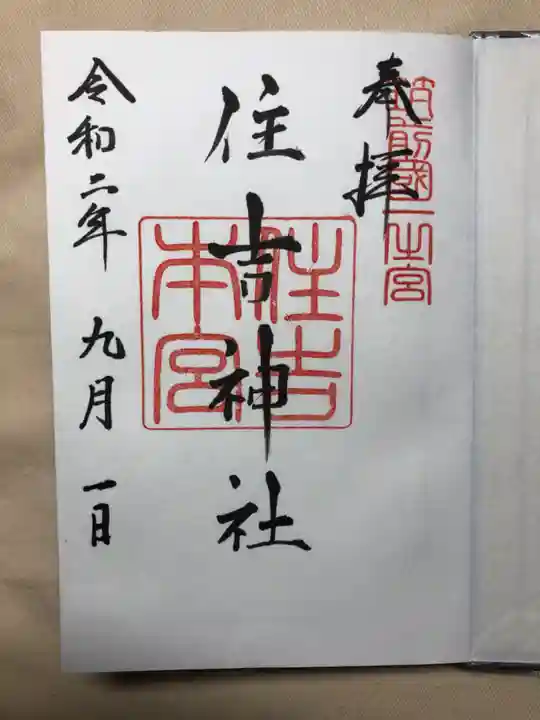 奉拝
筑前國一之宮
住吉神社
住吉本宮
令和二年 九月 一日